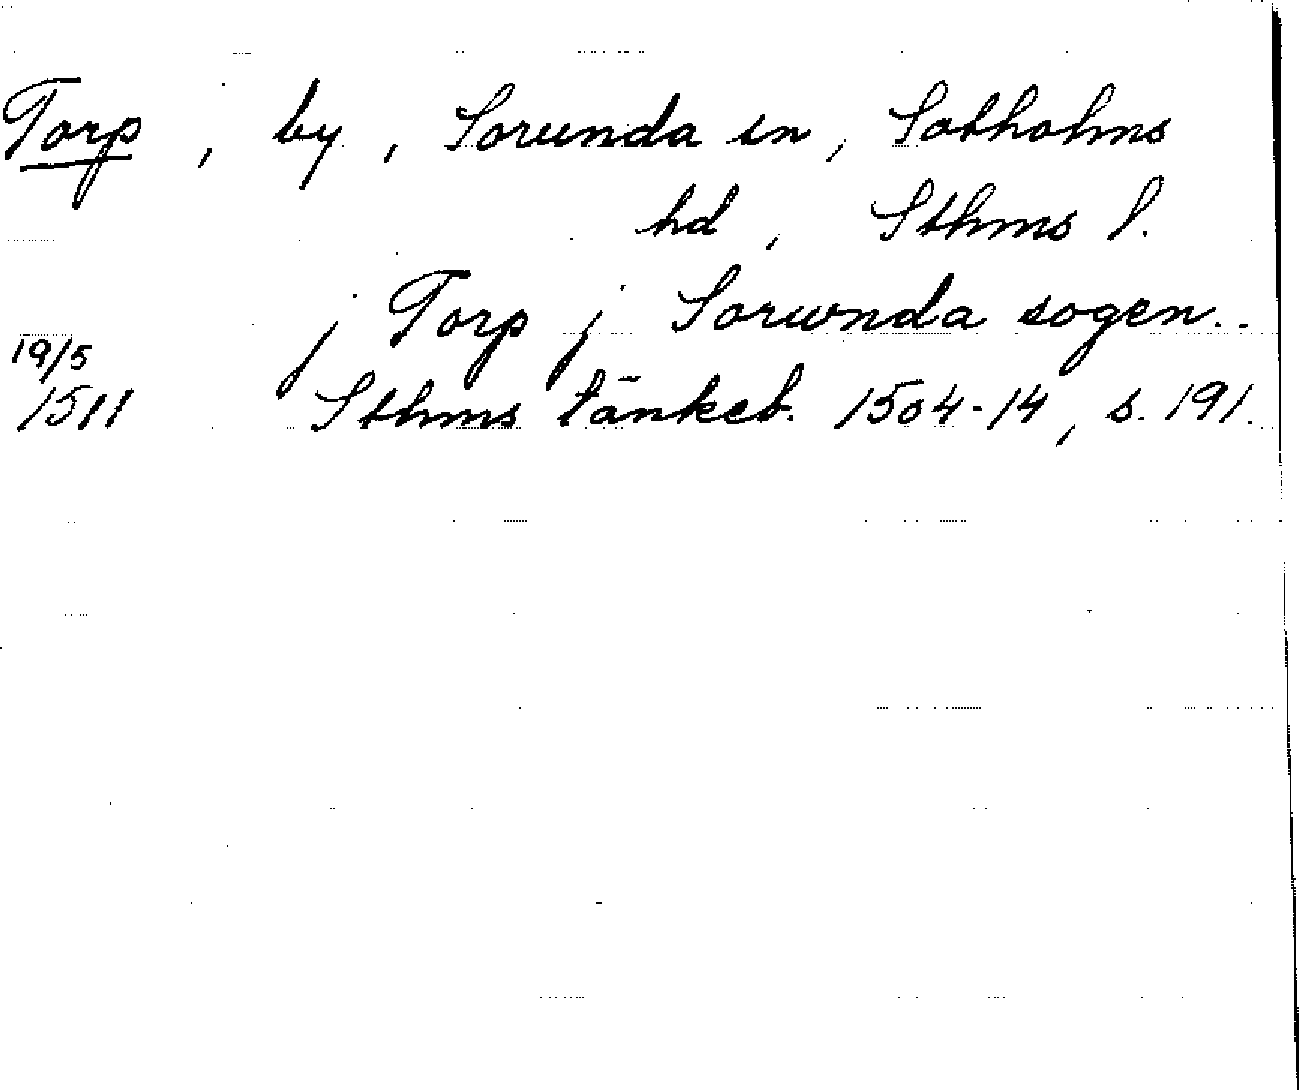 Torp, by, Sorunda sn, Sotholms
hd, Sthms l.
j Torp j Sorwnda sogen..
19/5
1511 Sthms tänkeb. 1504-14, s. 191.